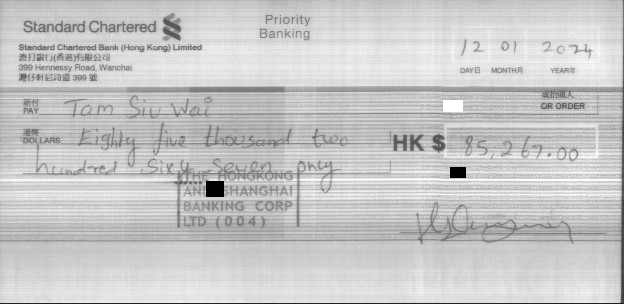 Standard Chartered
Priority
Banking
Standard Chartered Bank (Hong Kong) Limited
渣打銀行(香港)有限公司
399 Hennessy Road, Wanchai.
灣仔軒尼詩道 399 號
12 01 2024
DAY日 MONTH月 YEAR年
祈付
PAY Tam Siu Wai
或指領人
OR ORDER
港幣
DOLLARS Eighty five thousand two
hundred Sixty Seven only
HK $ 85,267.00
THE HONGKONG
AND SHANGHAI
BANKING CORP
LTD (004)